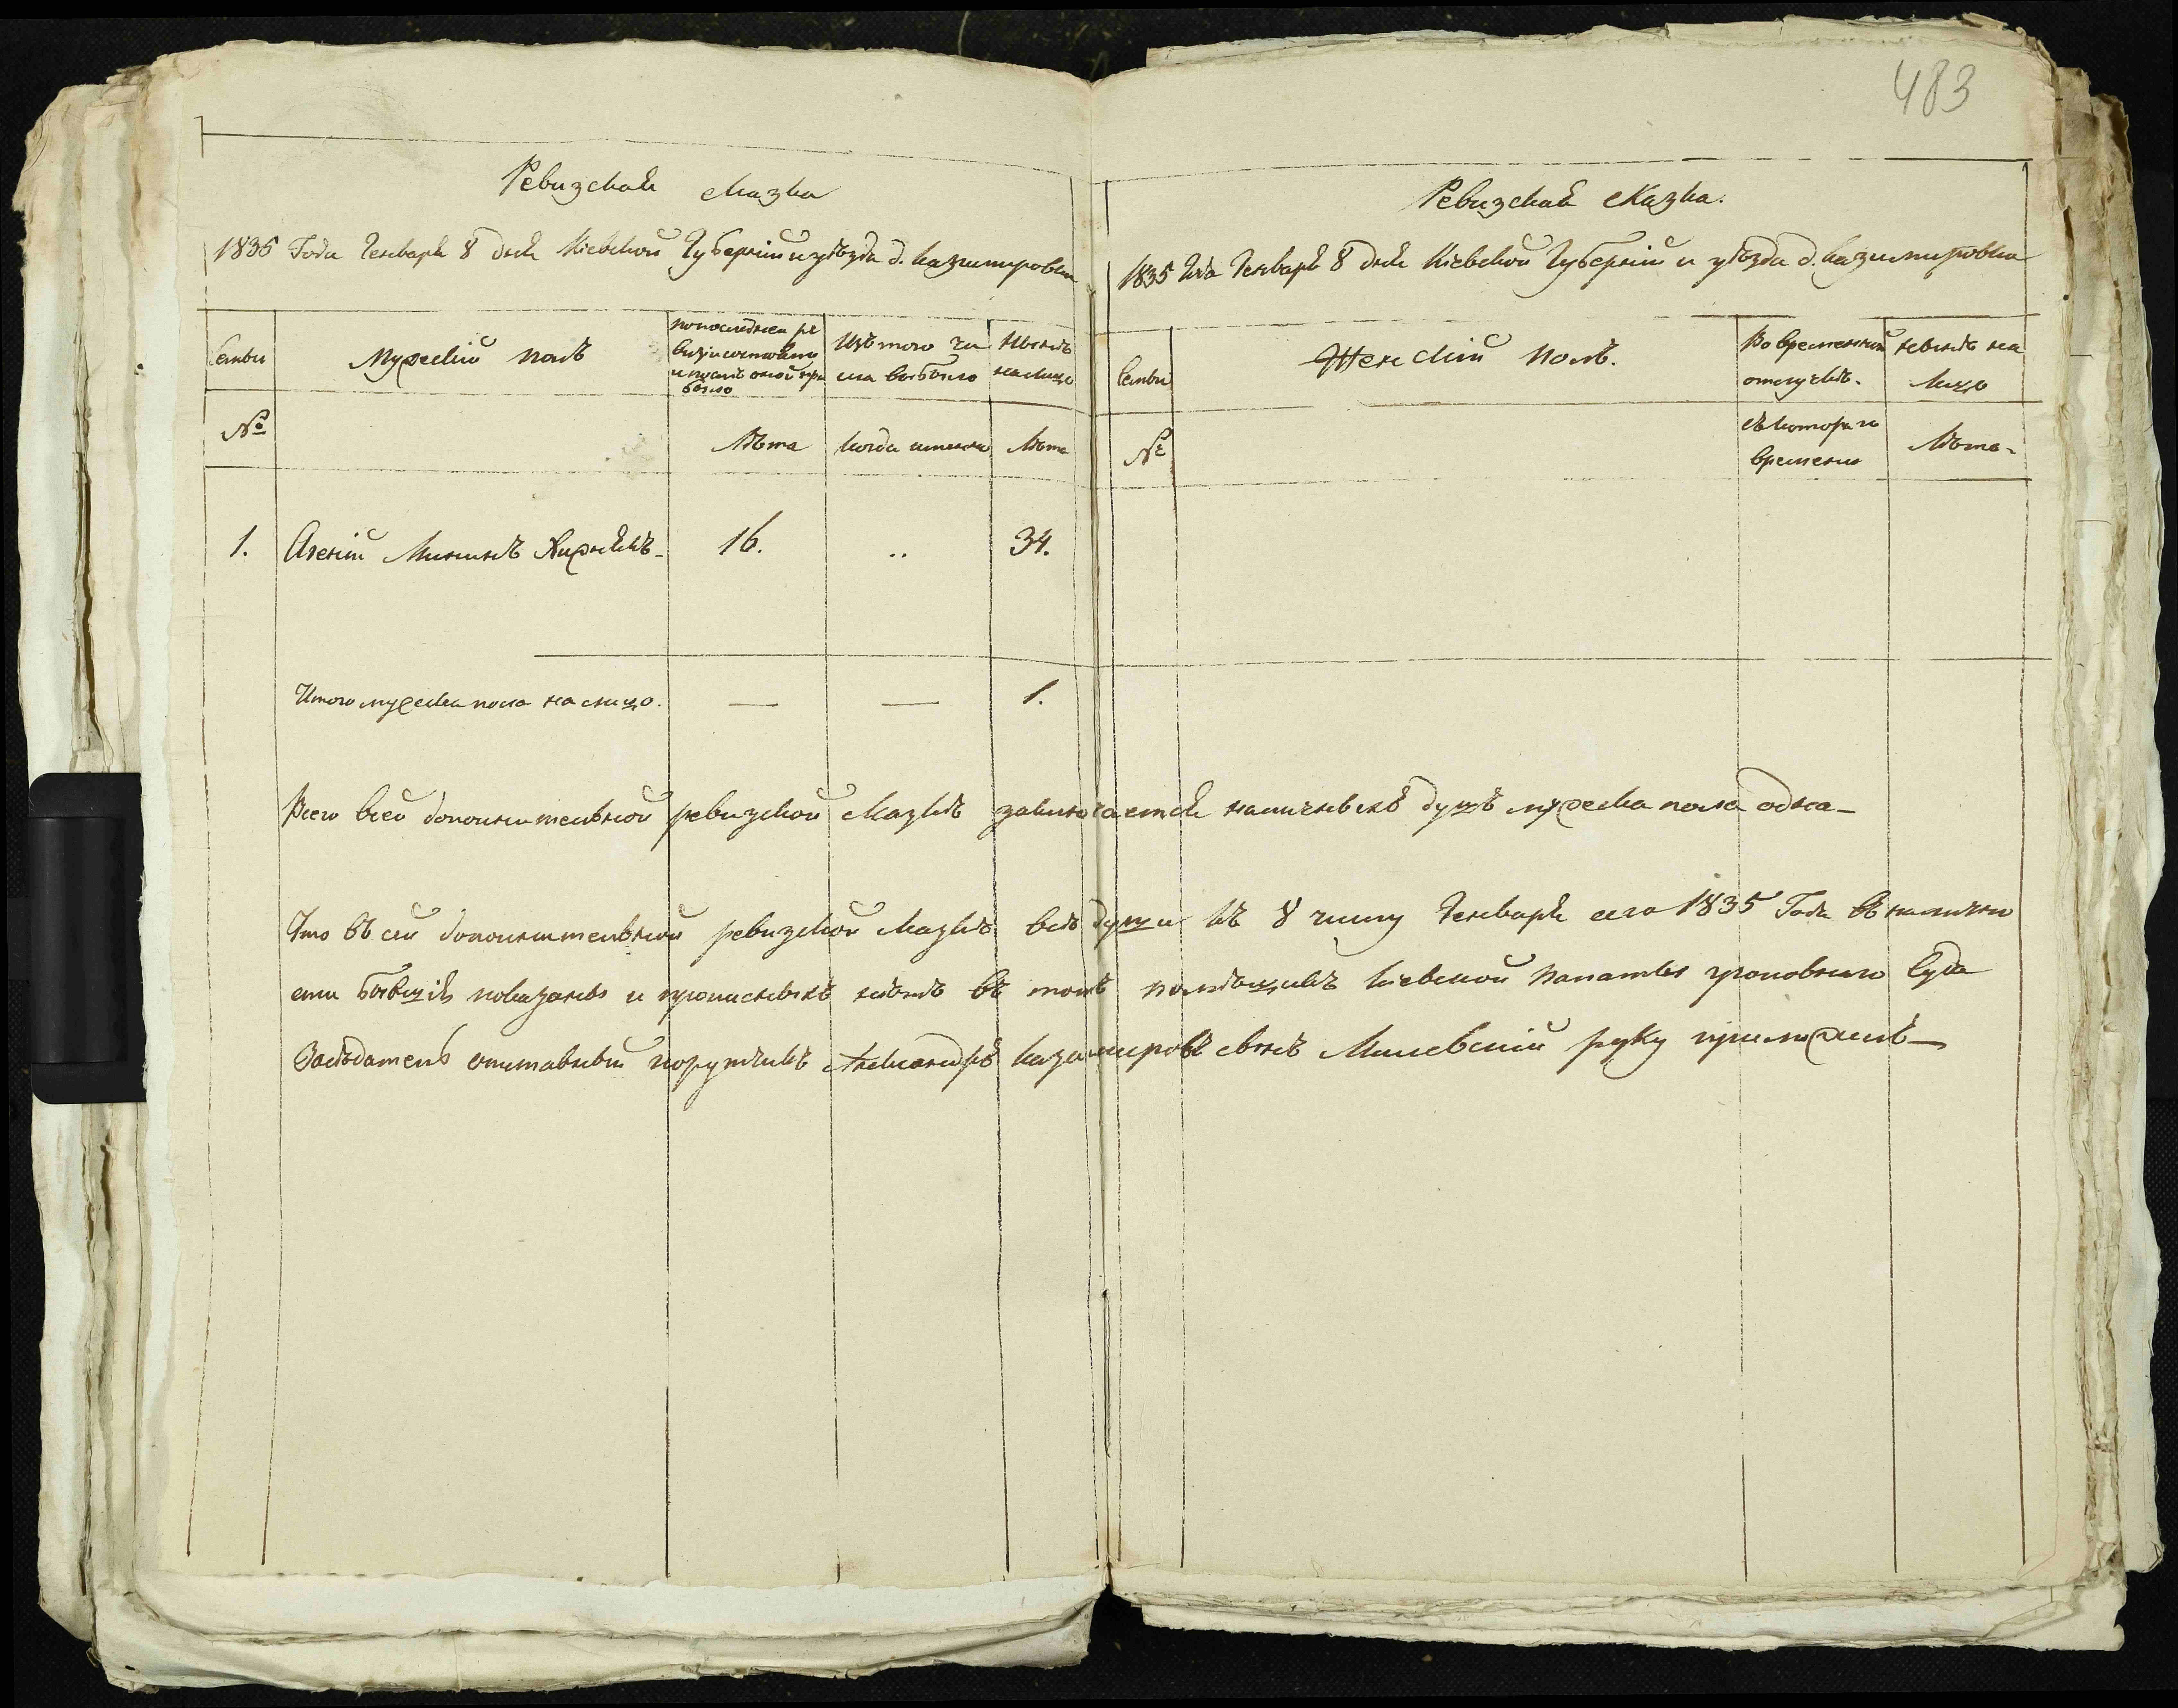 483
Ревизская сказка
1835 Года Генваря 8 дня Кіевской Губерніи и уѣзда д. Казимировки
Семьи
Мужескій полъ
по последней ре
визіи состояло
и послѣ оной при
было
Изъ того чи
сла выбыло
Нынѣ
на лицо
№
Лѣта
когда именно
Лѣта
1. Мининъ 16. .. 34.
Итого мужеска пола на лицо. — — 1.
Ревизская сказка.
1835 года Генваря 8 дня Кіевской Губерніи и уѣзда д. Казимировки
Семьи
Женскій полъ.
Во временной
отлучкѣ.
нынѣ на
лицо
№
съ котораго
времени
Лѣта.
Всего в сей дополнительной ревизской сказкѣ заключается наличныхъ душъ мужеска пола одна—
Что въ сей дополнительной ревизской сказкѣ всѣ души къ 8 числу Генваря сего 1835 Года въ налично
сти бывшія показаны и прописныхъ нѣтъ въ томъ помѣщикъ Кіевской Палаты уголовнаго Суда
Засѣдатель отставный порутчикъ Александръ Казимировъ сынъ руку приложилъ—